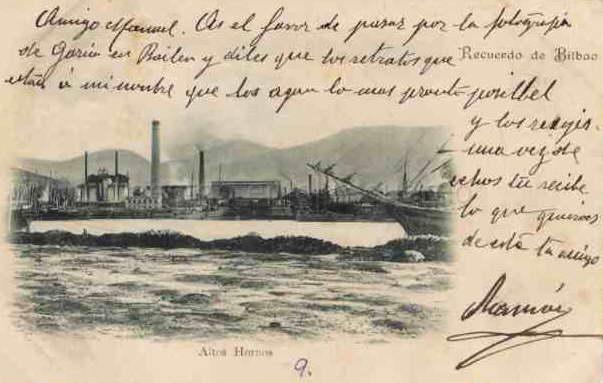 Amigo Manuel. As el favor de pasar por la fotografia
de Garcia en Bailen y diles que los retratos que
Recuerdo de Bilbao
estan á mi nombre que los agan lo mas pronto posillel
y los recojes.
una vez de
echos tú recibe
lo que quieras
de este tu amigo
Ramón
Altos Hornos
9.